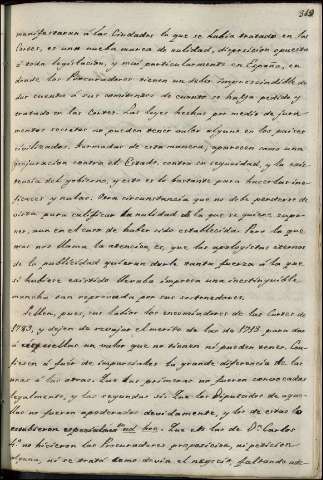 369
manifestaran á las Ciudades lo que se habia tratado en las
Cortes, es una nueba marca de nulidad, disposicion opuesta
á toda legislacion, y mas particularmente en España, en
donde los Procuradores tienen un deber imprescindible de
dar cuenta á sus comitentes de cuanto se haya pedido y
tratado en las Cortes. Las leyes hechas por medio de jura
mentos secretos no pueden tener valor alguno en los paises
civilizados. Formadas de esta manera, aparecen como una
conjuracion contra el Estado, contra su seguridad, y la exis
tencia del gobierno, y esto es lo bastante para hacerlas ine
ficaces y nulas. Otra circunstancia que no debe perderse de
vista para calificar la nulidad de la que se quiere supo
ner, aun en el caso de haber sido establecida. Pero lo que
mas nos llama la atencion es, que los apologistas eternos
de la publicidad quieran darle tanta fuerza á la que
si hubiese existido llevaba impresa una inestinguible
mancha tan reprovada por sus sostenedores.
Sellen, pues, sus labios los encomiadores de las Cortes de
1789, y dejen de revajar el merito de las de 1713, para dar
á aquellas un valor que no tienen ni pueden tener. Con
fiesen á fuer de imparciales la grande diferencia de las
unas á las otras. Que las primeras no fueron convocadas
legalmente, y las segundas sí. Que los Diputados de aque
llas no fueron apoderados devidamente, y los de estas lo
estubieron especialmte ad hoc. Que en las de Dn Carlos
4º no hicieron los Procuradores proposicion, ni peticion
alguna, ni se trató como devia el negocio, faltando ade-